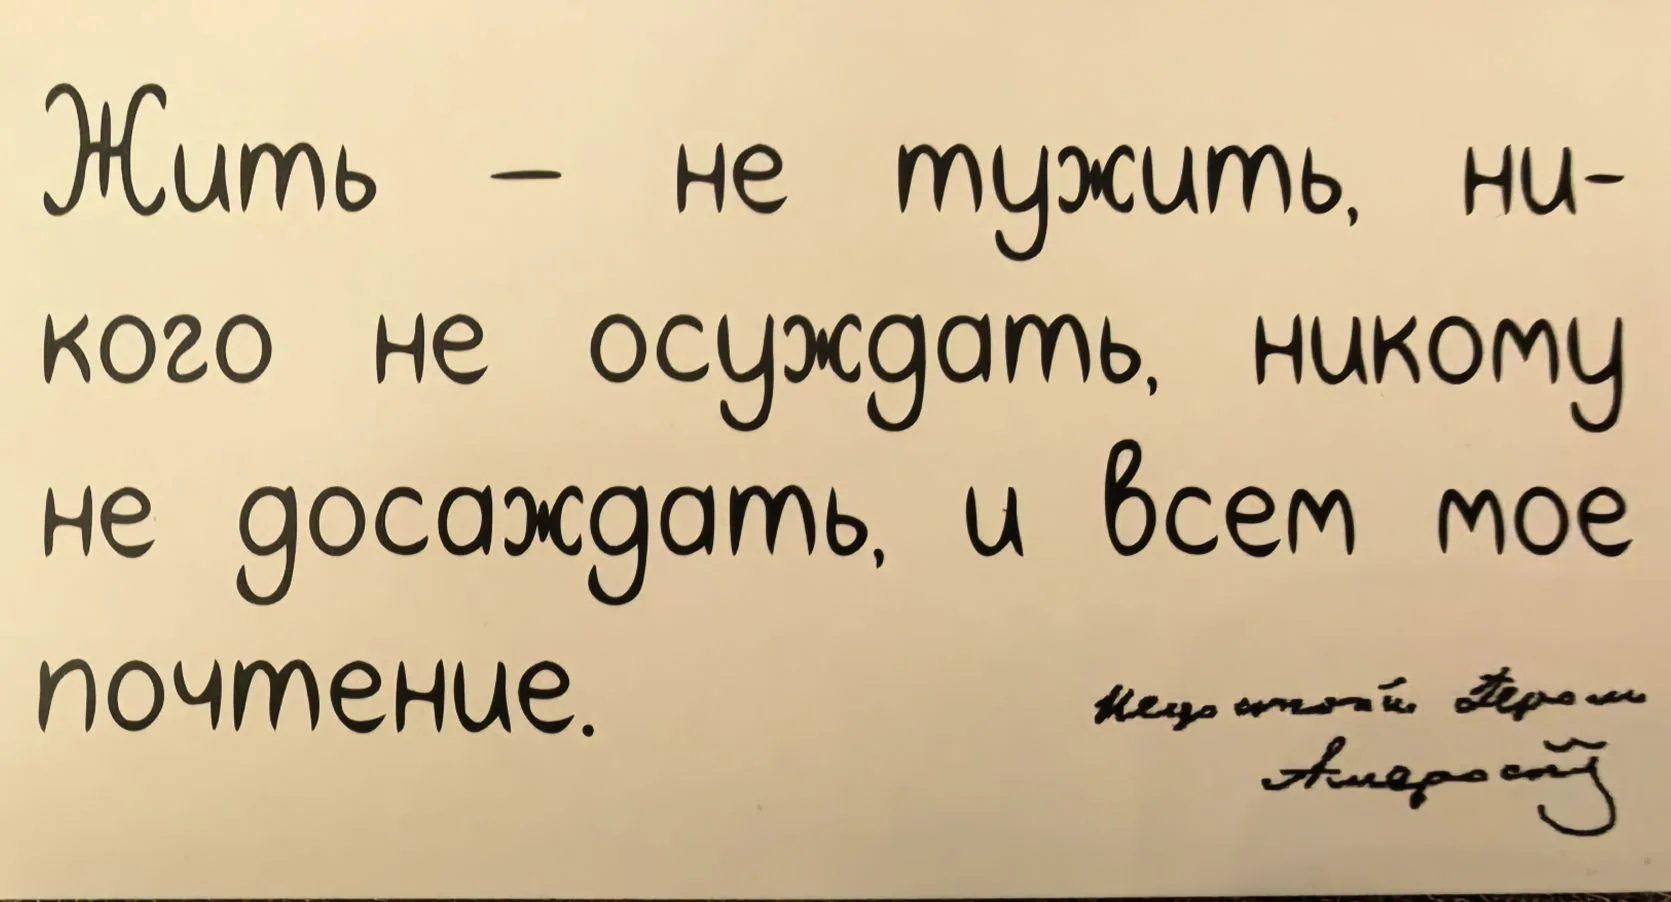 Жить – не тужить, ни-
кого не осуждать, никому
не досаждать, и всем мое
почтение.
недостойный Иером
Амвросий